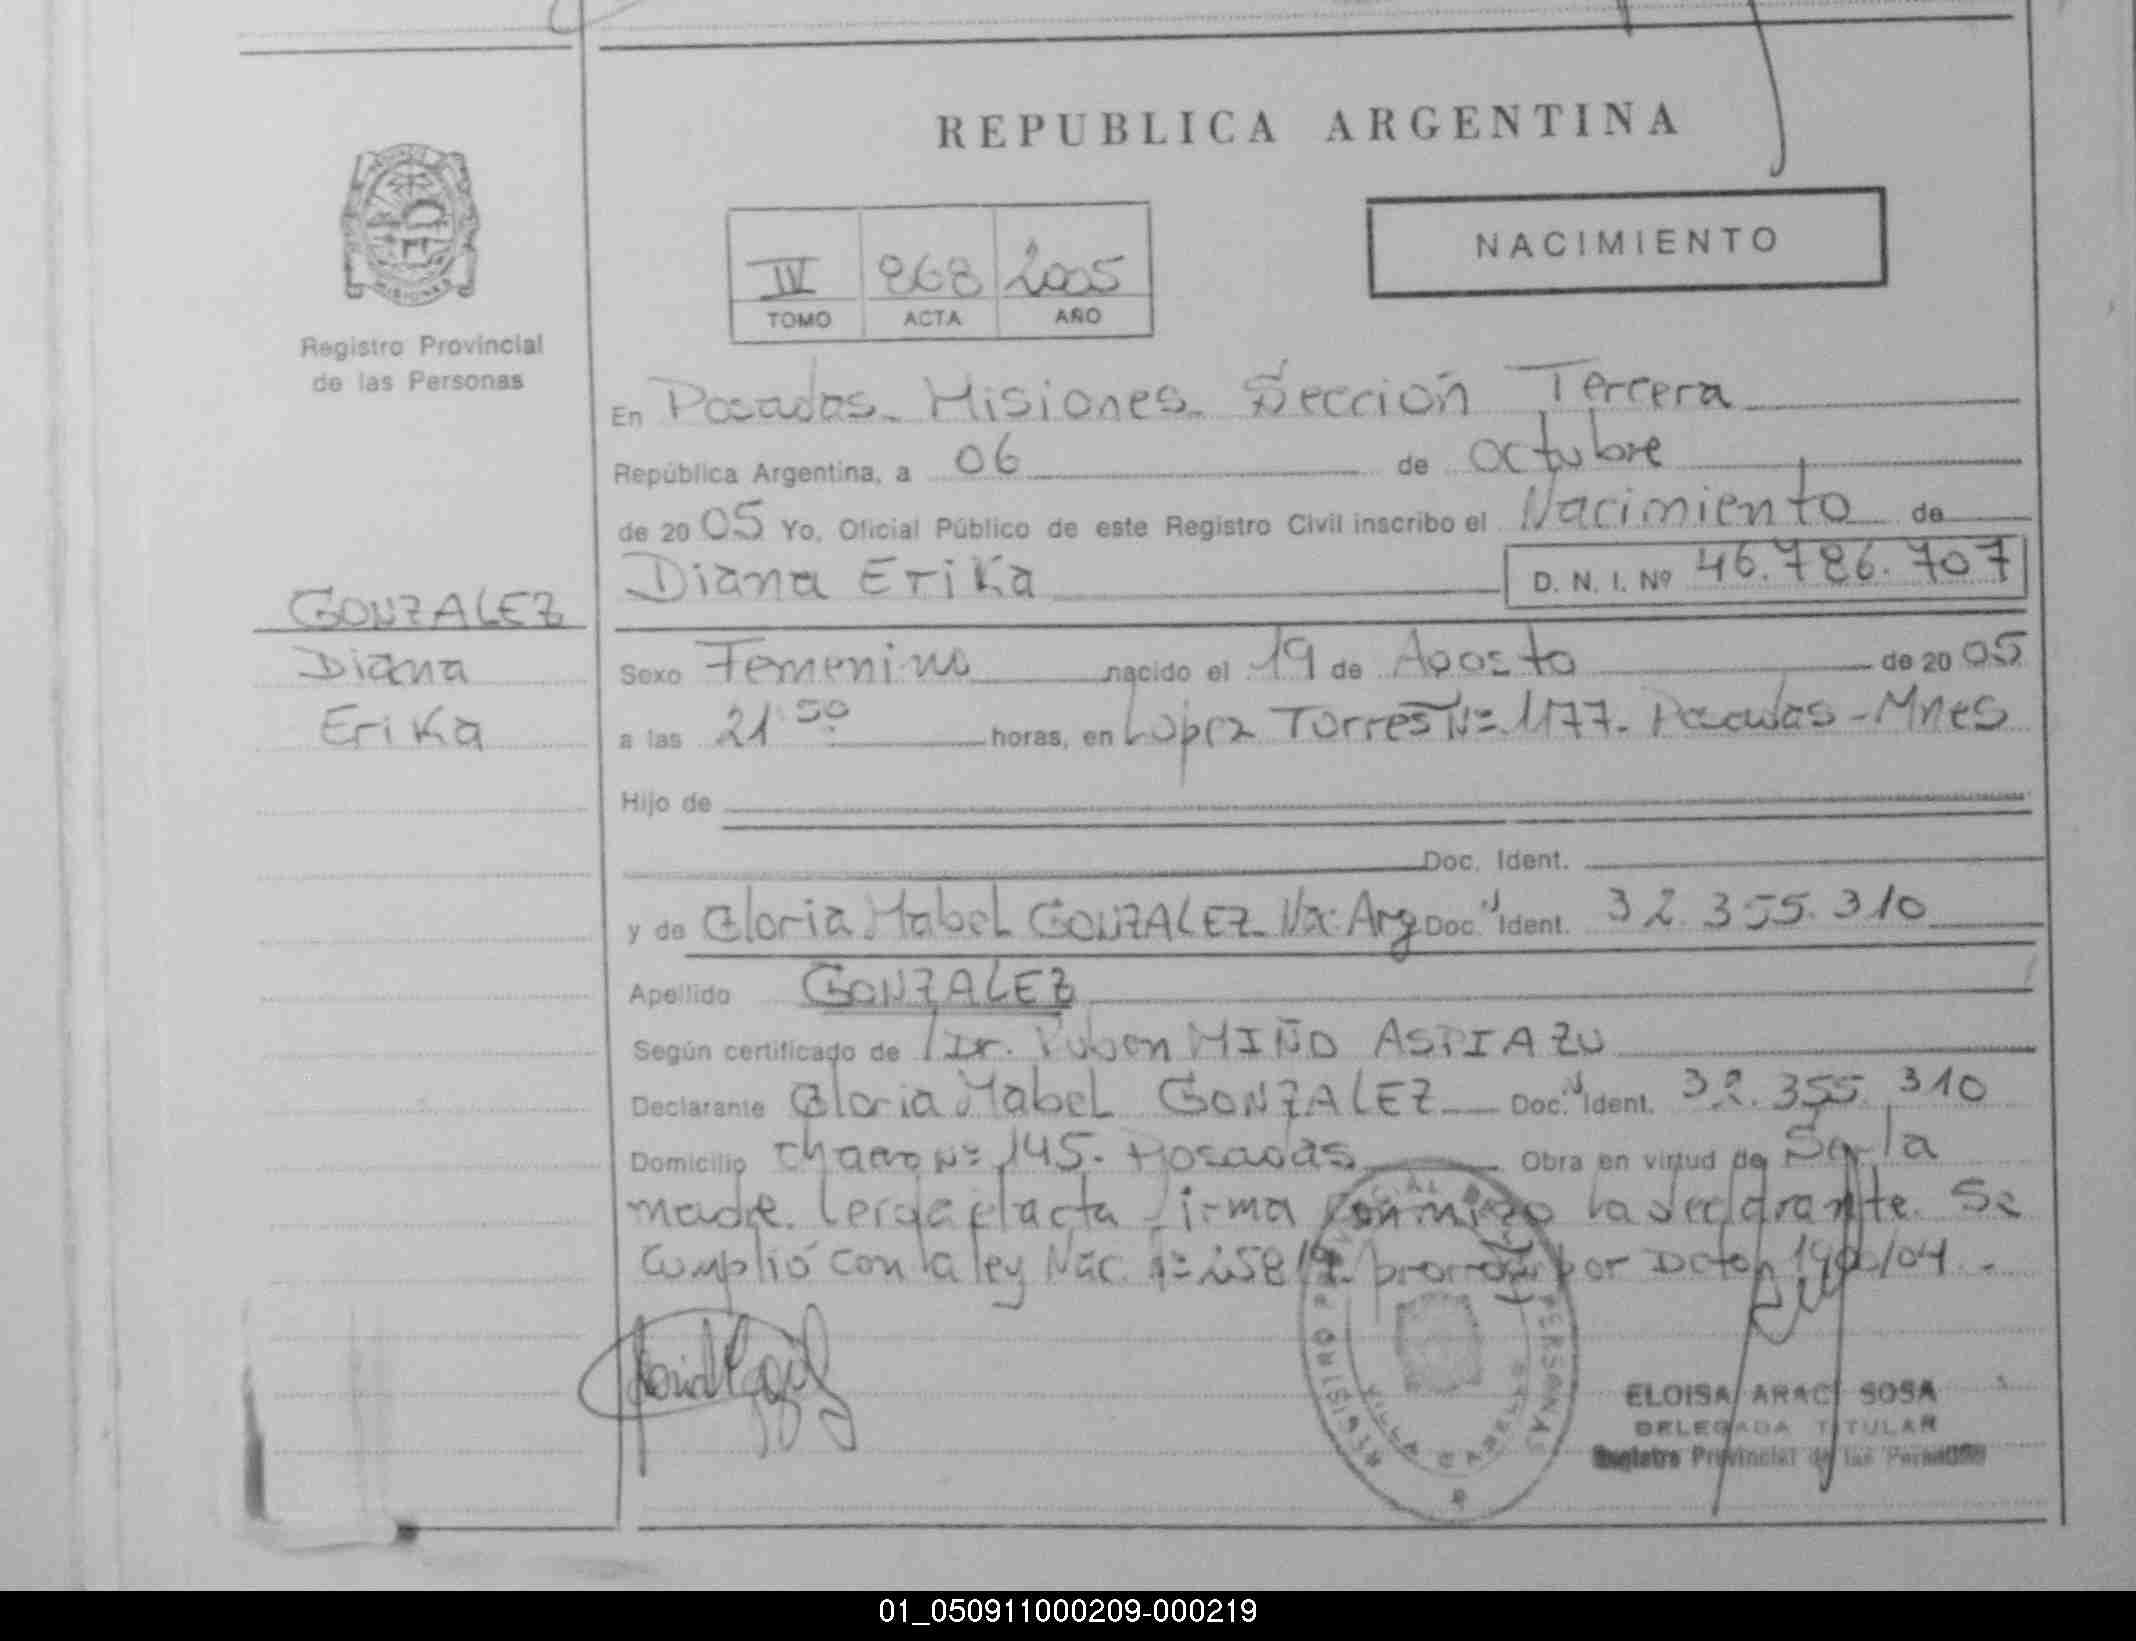 REPUBLICA ARGENTINA
NACIMIENTO
IV 868 2005
TOMO ACTA AÑO
MISIONES
Registro Provincial
de las Personas
En Posadas. Misiones. Sección Tercera
República Argentina, a 06 de octubre
de 2005 Yo, Oficial Público de este Registro Civil inscribo el Nacimiento de
Diana Erika D. N. I. Nº 46.786.707
GONZALEZ
Diana
Erika
Sexo Femenino nacido el 19 de Agosto de 2005
a las 21 50 horas, en Lopez Torres Nº 1177. Posadas - Mnes
Hijo de
Doc. Ident.
y de Gloria Mabel GONZALEZ. Nac. Arg Doc. Ident. 32.355.310
Apellido GONZALEZ
Según certificado de Dr. Ruben MIÑO ASPIAZU
Declarante Gloria Mabel GONZALEZ Doc. Ident. 32.355.310
Domicilio Chaco Nº 145. Posadas Obra en virtud de Ser la
madre. Leida el acta firma conmigo la declarante. Se
cumplió con la ley Nac. Nº 25819 prorrog por Dcto
REGISTRO PROVINCIAL DE LAS PERSONAS
VILLA CABELLO
ELOISA ARACI SOSA
DELEGADA TITULAR
Registro Provincial de las Personas
01_050911000209-000219